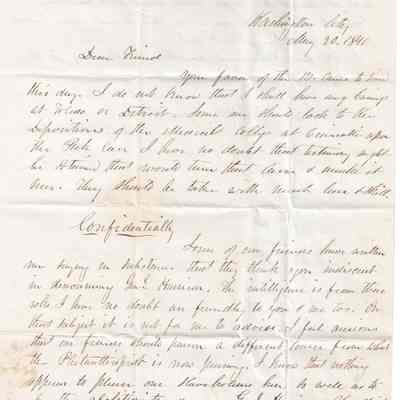 Washington City
May 20. 1841
Dear Friend
Your favor of the 12. came to hand
this day. I do not know that I shall have any beings
at Toledo or Detroit. Some one should look to the
Depositions of the Medical College at Cincinnati upon
the Fish case I have no doubt that testimony might
be obtained that would turn that case & make it
ours. They should be taken with much care & skill.
Confidentially
Some of our friends have written
me saying in substance that they think you indiscreet
in denouncing Genl Harrison. The intelligence is from those
who I have no doubt are friendly to you & me too. On
that subject it is not for me to advise. I feel anxious
that our friends should pursue a different course from what
the Philanthropist is now pursuing. I know that nothing
appears to please our slaveholders here so well as to